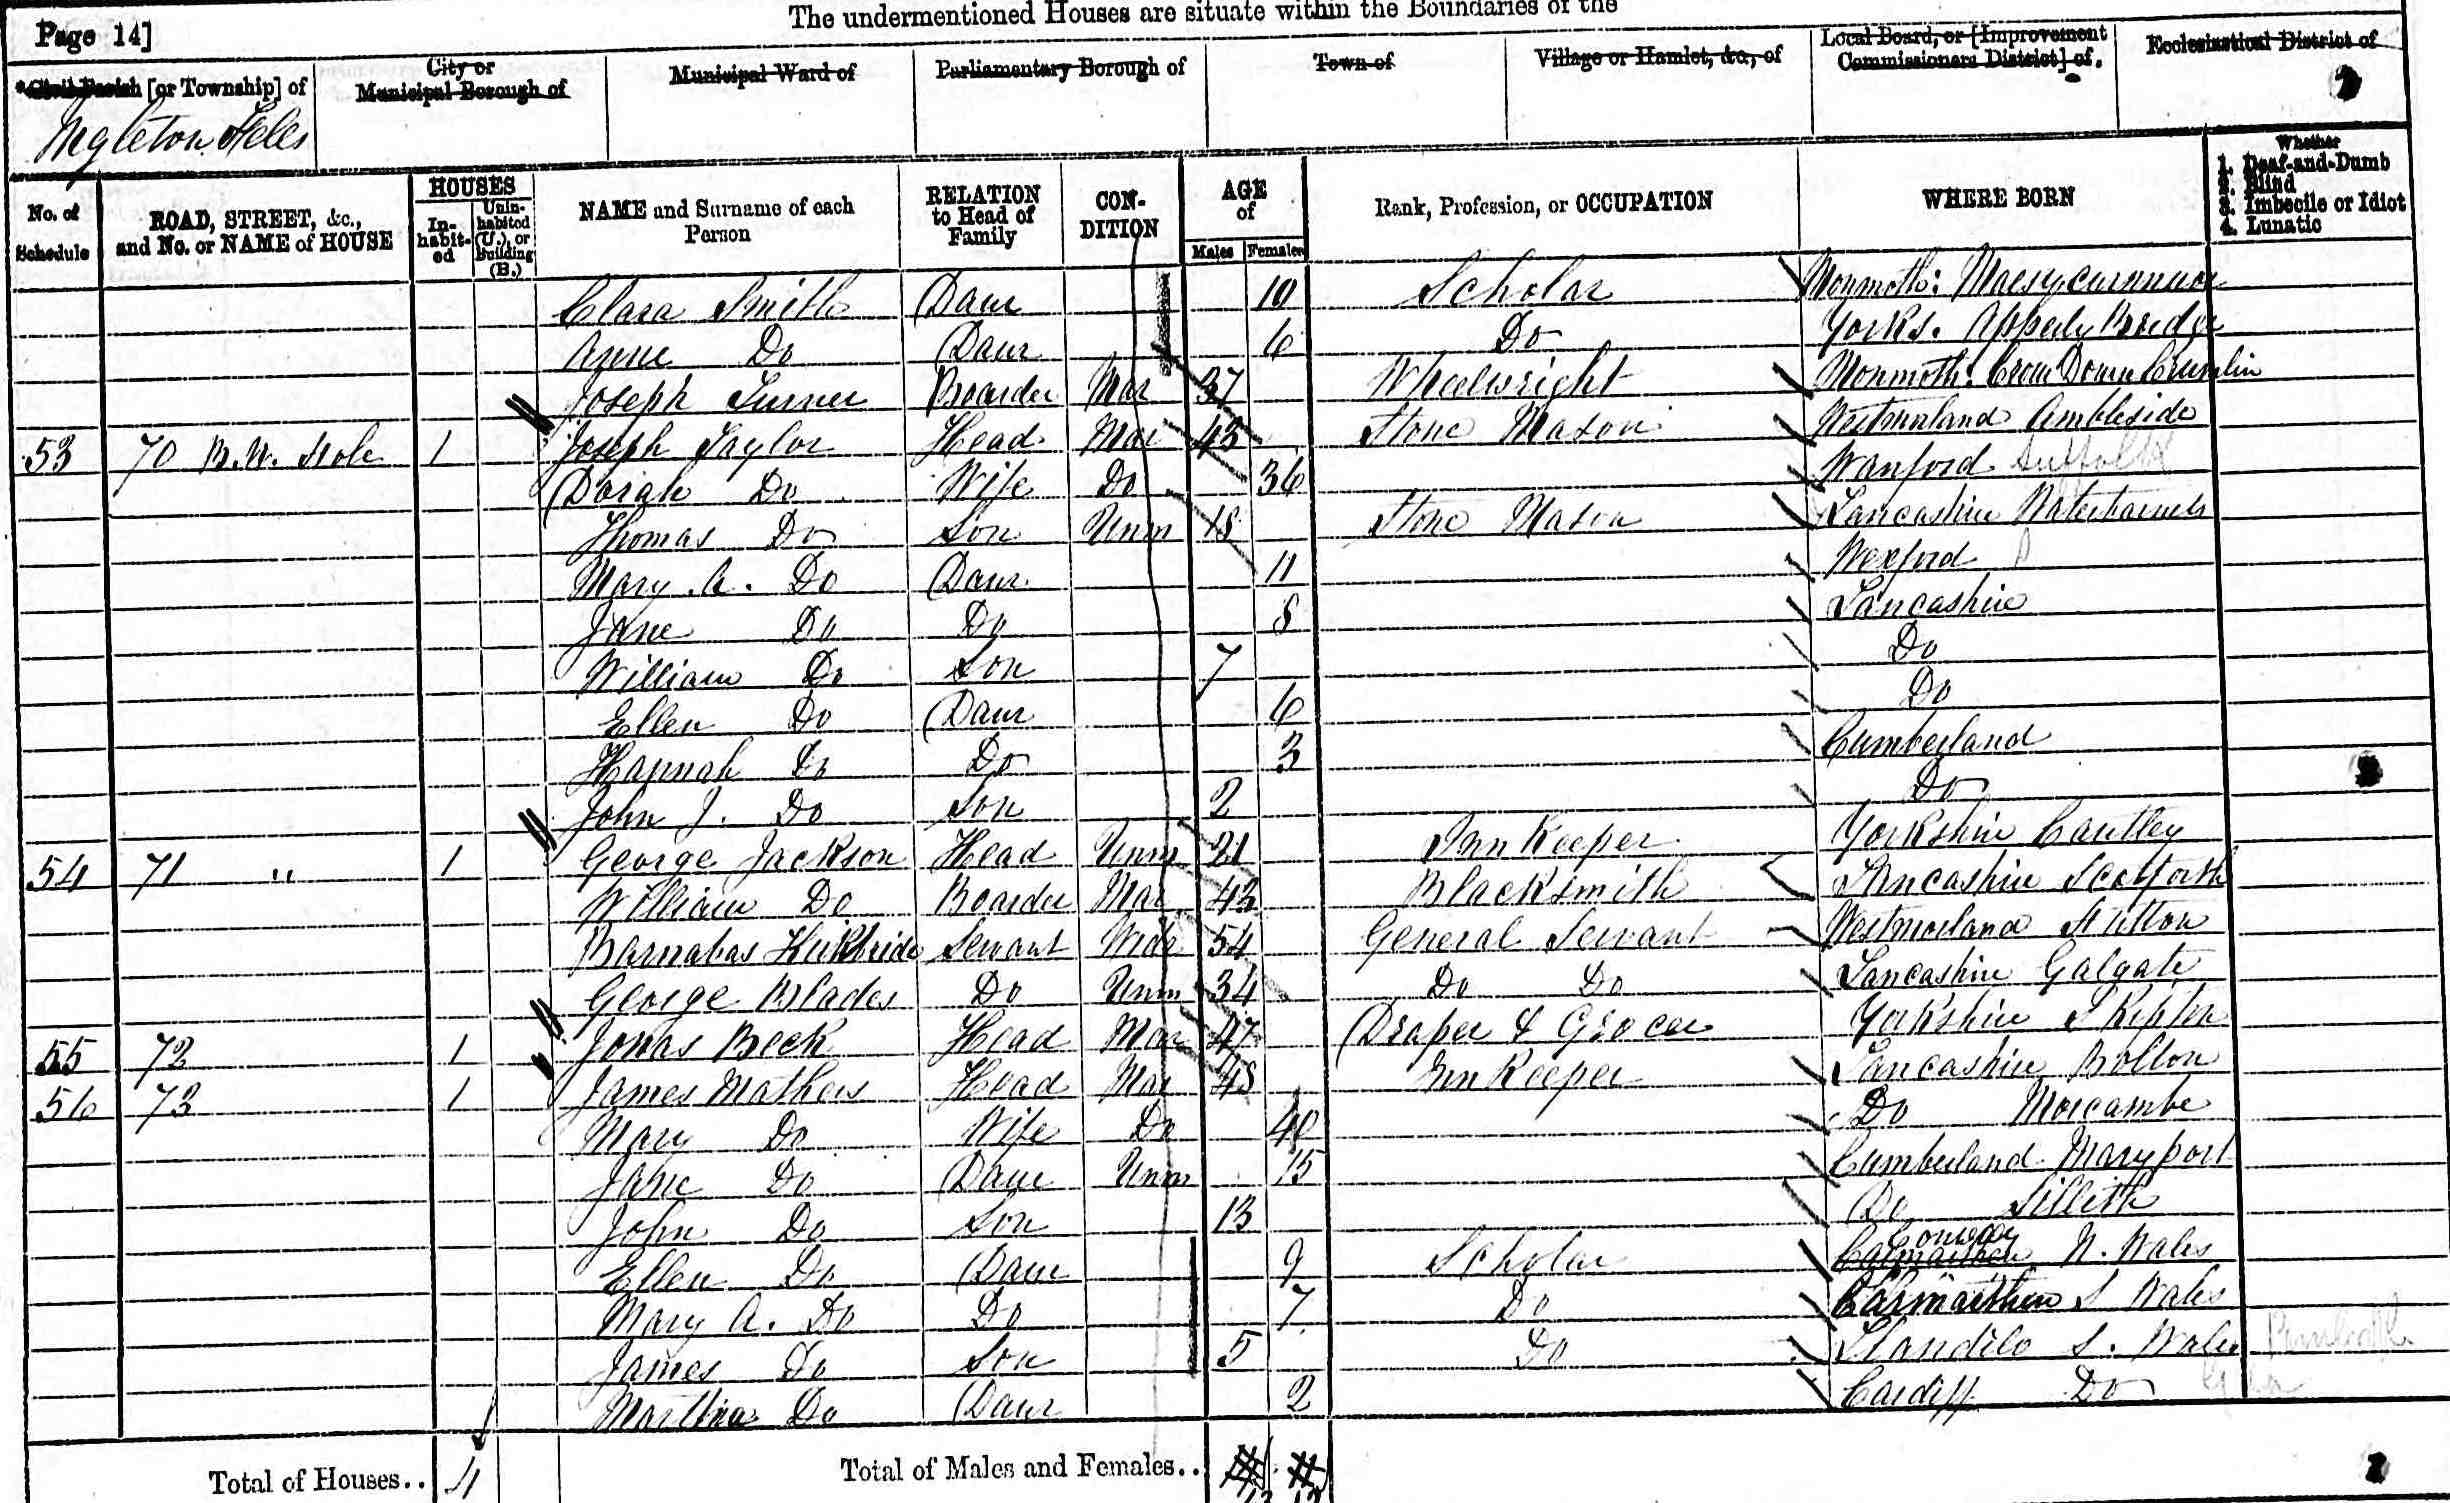 The undermentioned Houses are situate within the Boundaries of the
Page 14]
Civil Parish [or Township] of
City or Municipal Borough of
Municipal Ward of
Parliamentary Borough of
Town of
Village or Hamlet, &c., of
Local Board, or [Improvement Commissioners District] of
Ecclesiastical District of
Ingleton Fells
No. of Schedule
ROAD, STREET, &c., and No. or NAME of HOUSE
HOUSES
In-habit-ed
Unin-habited (U.), or Building (B.)
NAME and Surname of each Person
RELATION to Head of Family
CON-DITION
AGE of
Males
Females
Rank, Profession, or OCCUPATION
WHERE BORN
Whether
1. Deaf-and-Dumb
2. Blind
3. Imbecile or Idiot
4. Lunatic
Clara Smith Daur 10 Scholar Monmoth:
Anne Do Daur 6 Do Yorks. Apperly Bridge
Joseph Turner Boarder Mar 37 Wheelwright Monmoth: Crumlin
53 70 B.W. Hole 1 Joseph Taylor Head Mar 43 Stone Mason Westmnland Ambleside
Dorah Do Wife Do 36 Wanford Suffolk
Thomas Do Son Unm 18 Stone Mason Lancashire
Mary A. Do Daur 11 Wexford
Jane Do Do 8 Lancashire
William Do Son 7 Do
Ellen Do Daur 6 Do
Hannah Do Do 3 Cumberland
John J. Do Son 2 Do
54 71 " 1 George Jackson Head Unm 21 Inn Keeper Yorkshire Cautley
William Do Boarder Mar 42 Blacksmith Lancashire Scotforth
Barnabas Kirkbride Servant Wide 54 General Servant Westmorland Hutton
George Blades Do Unm 34 Do Do Lancashire Galgate
55 72 1 Jonas Beck Head Mar 47 Draper & Grocer Yorkshire Skipton
56 73 1 James Mathers Head Mar 48 Inn Keeper Lancashire Bolton
Mary Do Wife Do 40 Do Morcambe
Jane Do Daur Unm 15 Cumberland Maryport
John Do Son 13 Do Silleth
Ellen Do Daur 9 Scholar Conway N. Wales
Mary A. Do Do 7 Do Carmarthen S Wales
James Do Son 5 Do Llandilo S. Wales
Martha Do Daur 2 Cardiff Do
Total of Houses.. 4
Total of Males and Females..